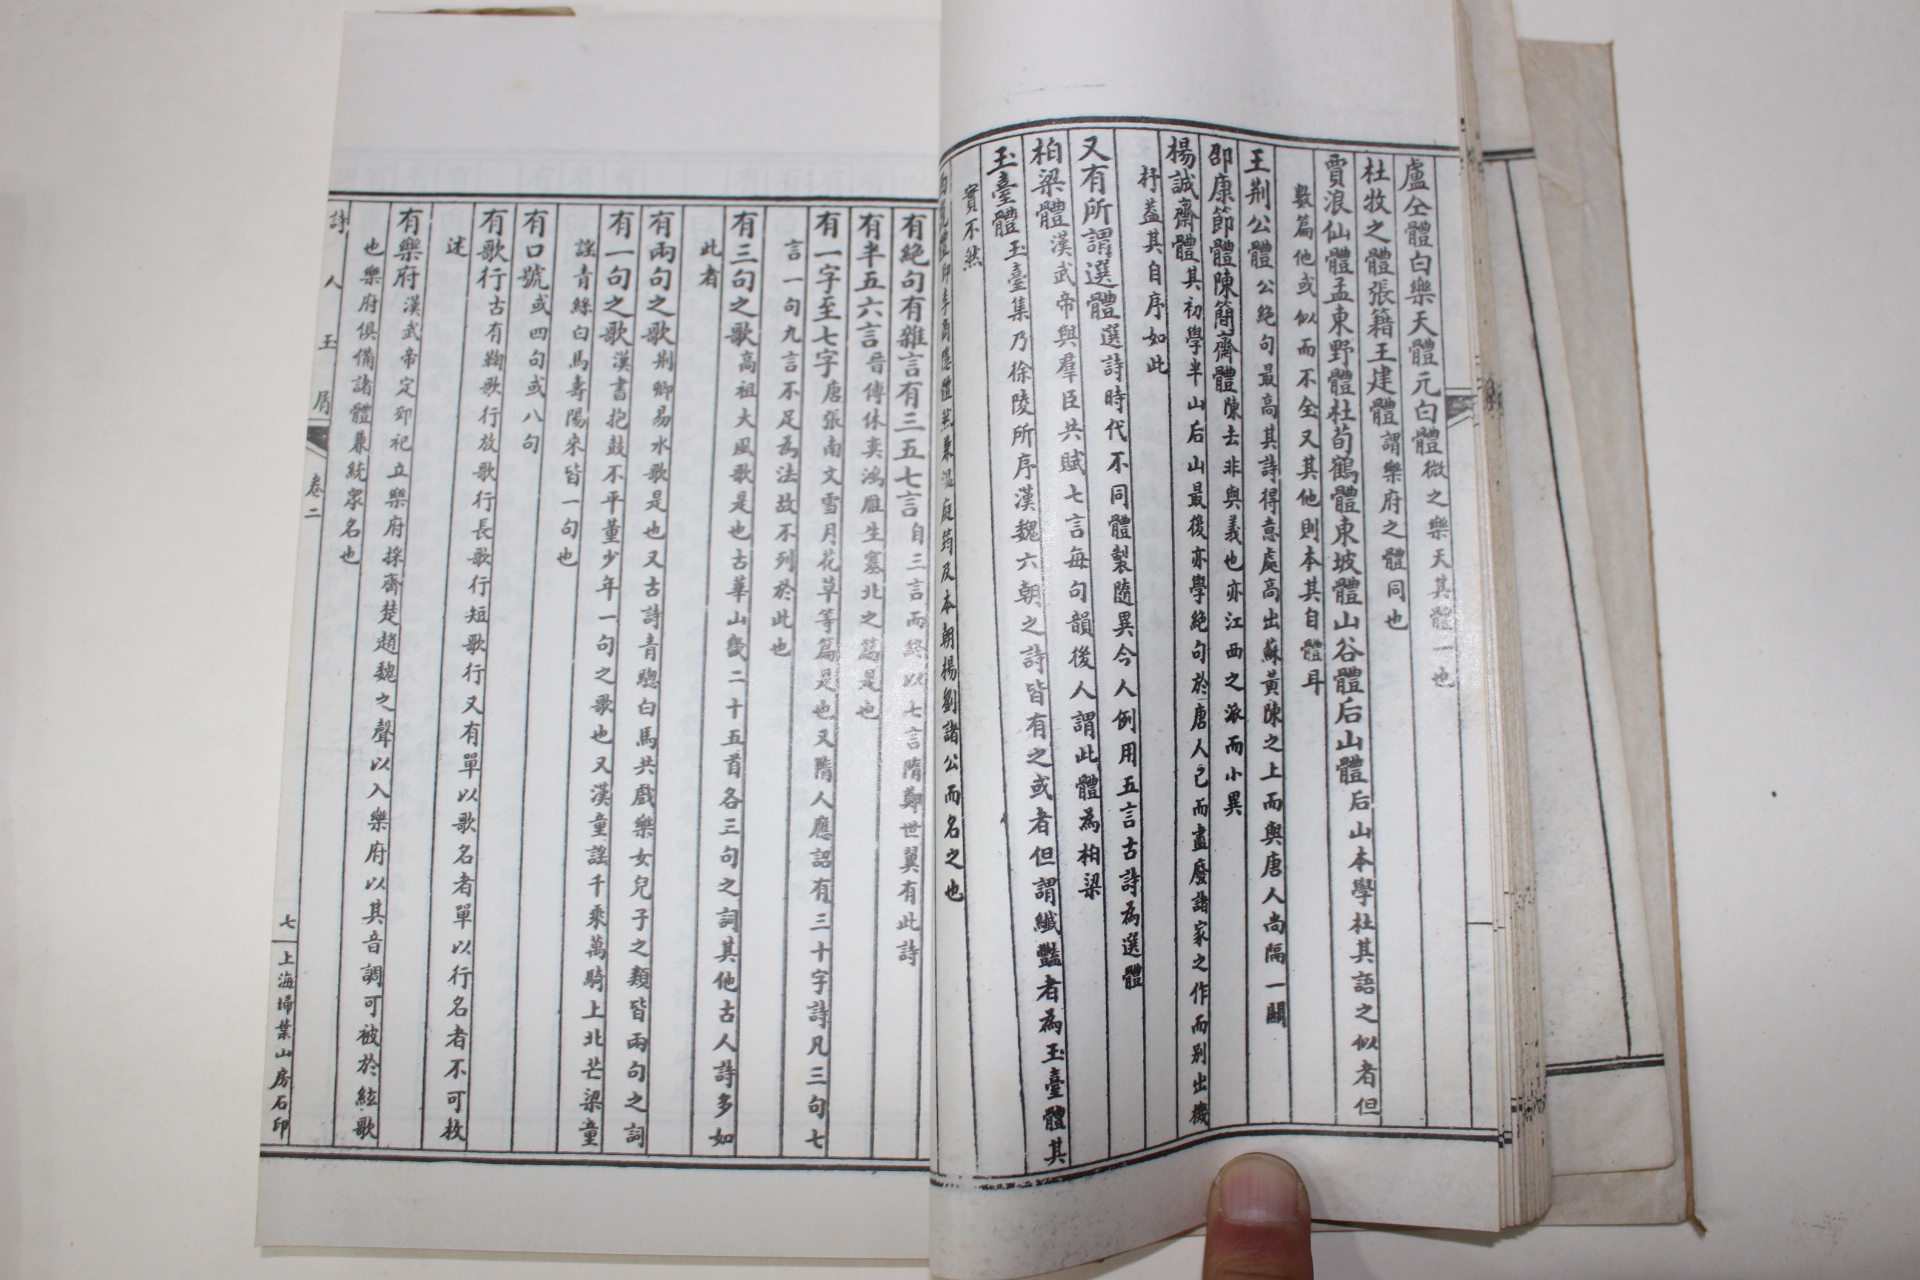 盧仝體白樂天體元白體微之樂天其體一也
杜牧之體張籍王建體謂樂府之體同也
賈浪仙體孟東野體杜荀鶴體東坡體山谷體后山體后山本學杜其語之似者但
數篇他或似而不全又其他則本其自體耳
王荆公體公絕句最高其詩得意處高出蘇黃陳之上而與唐人尚隔一關
邵康節體陳簡齋體陳去非與義也亦江西之派而小異
楊誠齋體其初學半山后山最後亦學絕句於唐人已而盡廢諸家之作而别出機
杼蓋其自序如此
又有所謂選體選詩時代不同體製隨異今人例用五言古詩為選體
柏梁體漢武帝與羣臣共賦七言每句韻後人謂此體為柏梁
玉臺體玉臺集乃徐陵所序漢魏六朝之詩皆有之或者但謂纖豔者為玉臺體其
實不然
體然兼溫庭筠及本朝楊劉諸公而名之也
有絕句有雜言有三五七言自三言而終以七言隋鄭世翼有此詩
有半五六言晉傅休奕鴻雁生塞北之篇是也
有一字至七字唐張南文雪月花草等篇是也又隋人應詔有三十字詩凡三句七
言一句九言不足為法故不列於此也
有三句之歌高祖大風歌是也古華山畿二十五首各三句之詞其他古人詩多如
此者
有兩句之歌荆卿易水歌是也又古詩青驄白馬共戲樂女兒子之類皆兩句之詞
有一句之歌漢書抱鼓不平董少年一句之歌也又漢童謠千乘萬騎上北芒梁童
謠青絲白馬壽陽來皆一句也
有口號或四句或八句
有歌行古有鞠歌行放歌行長歌行短歌行又有單以歌名者單以行名者不可枚
述
有樂府漢武帝定郊祀立樂府採齊楚趙魏之聲以入樂府以其音調可被於絃歌
也樂府俱備諸體兼統眾名也
詩人玉屑
卷二
七
上海埽葉山房石印